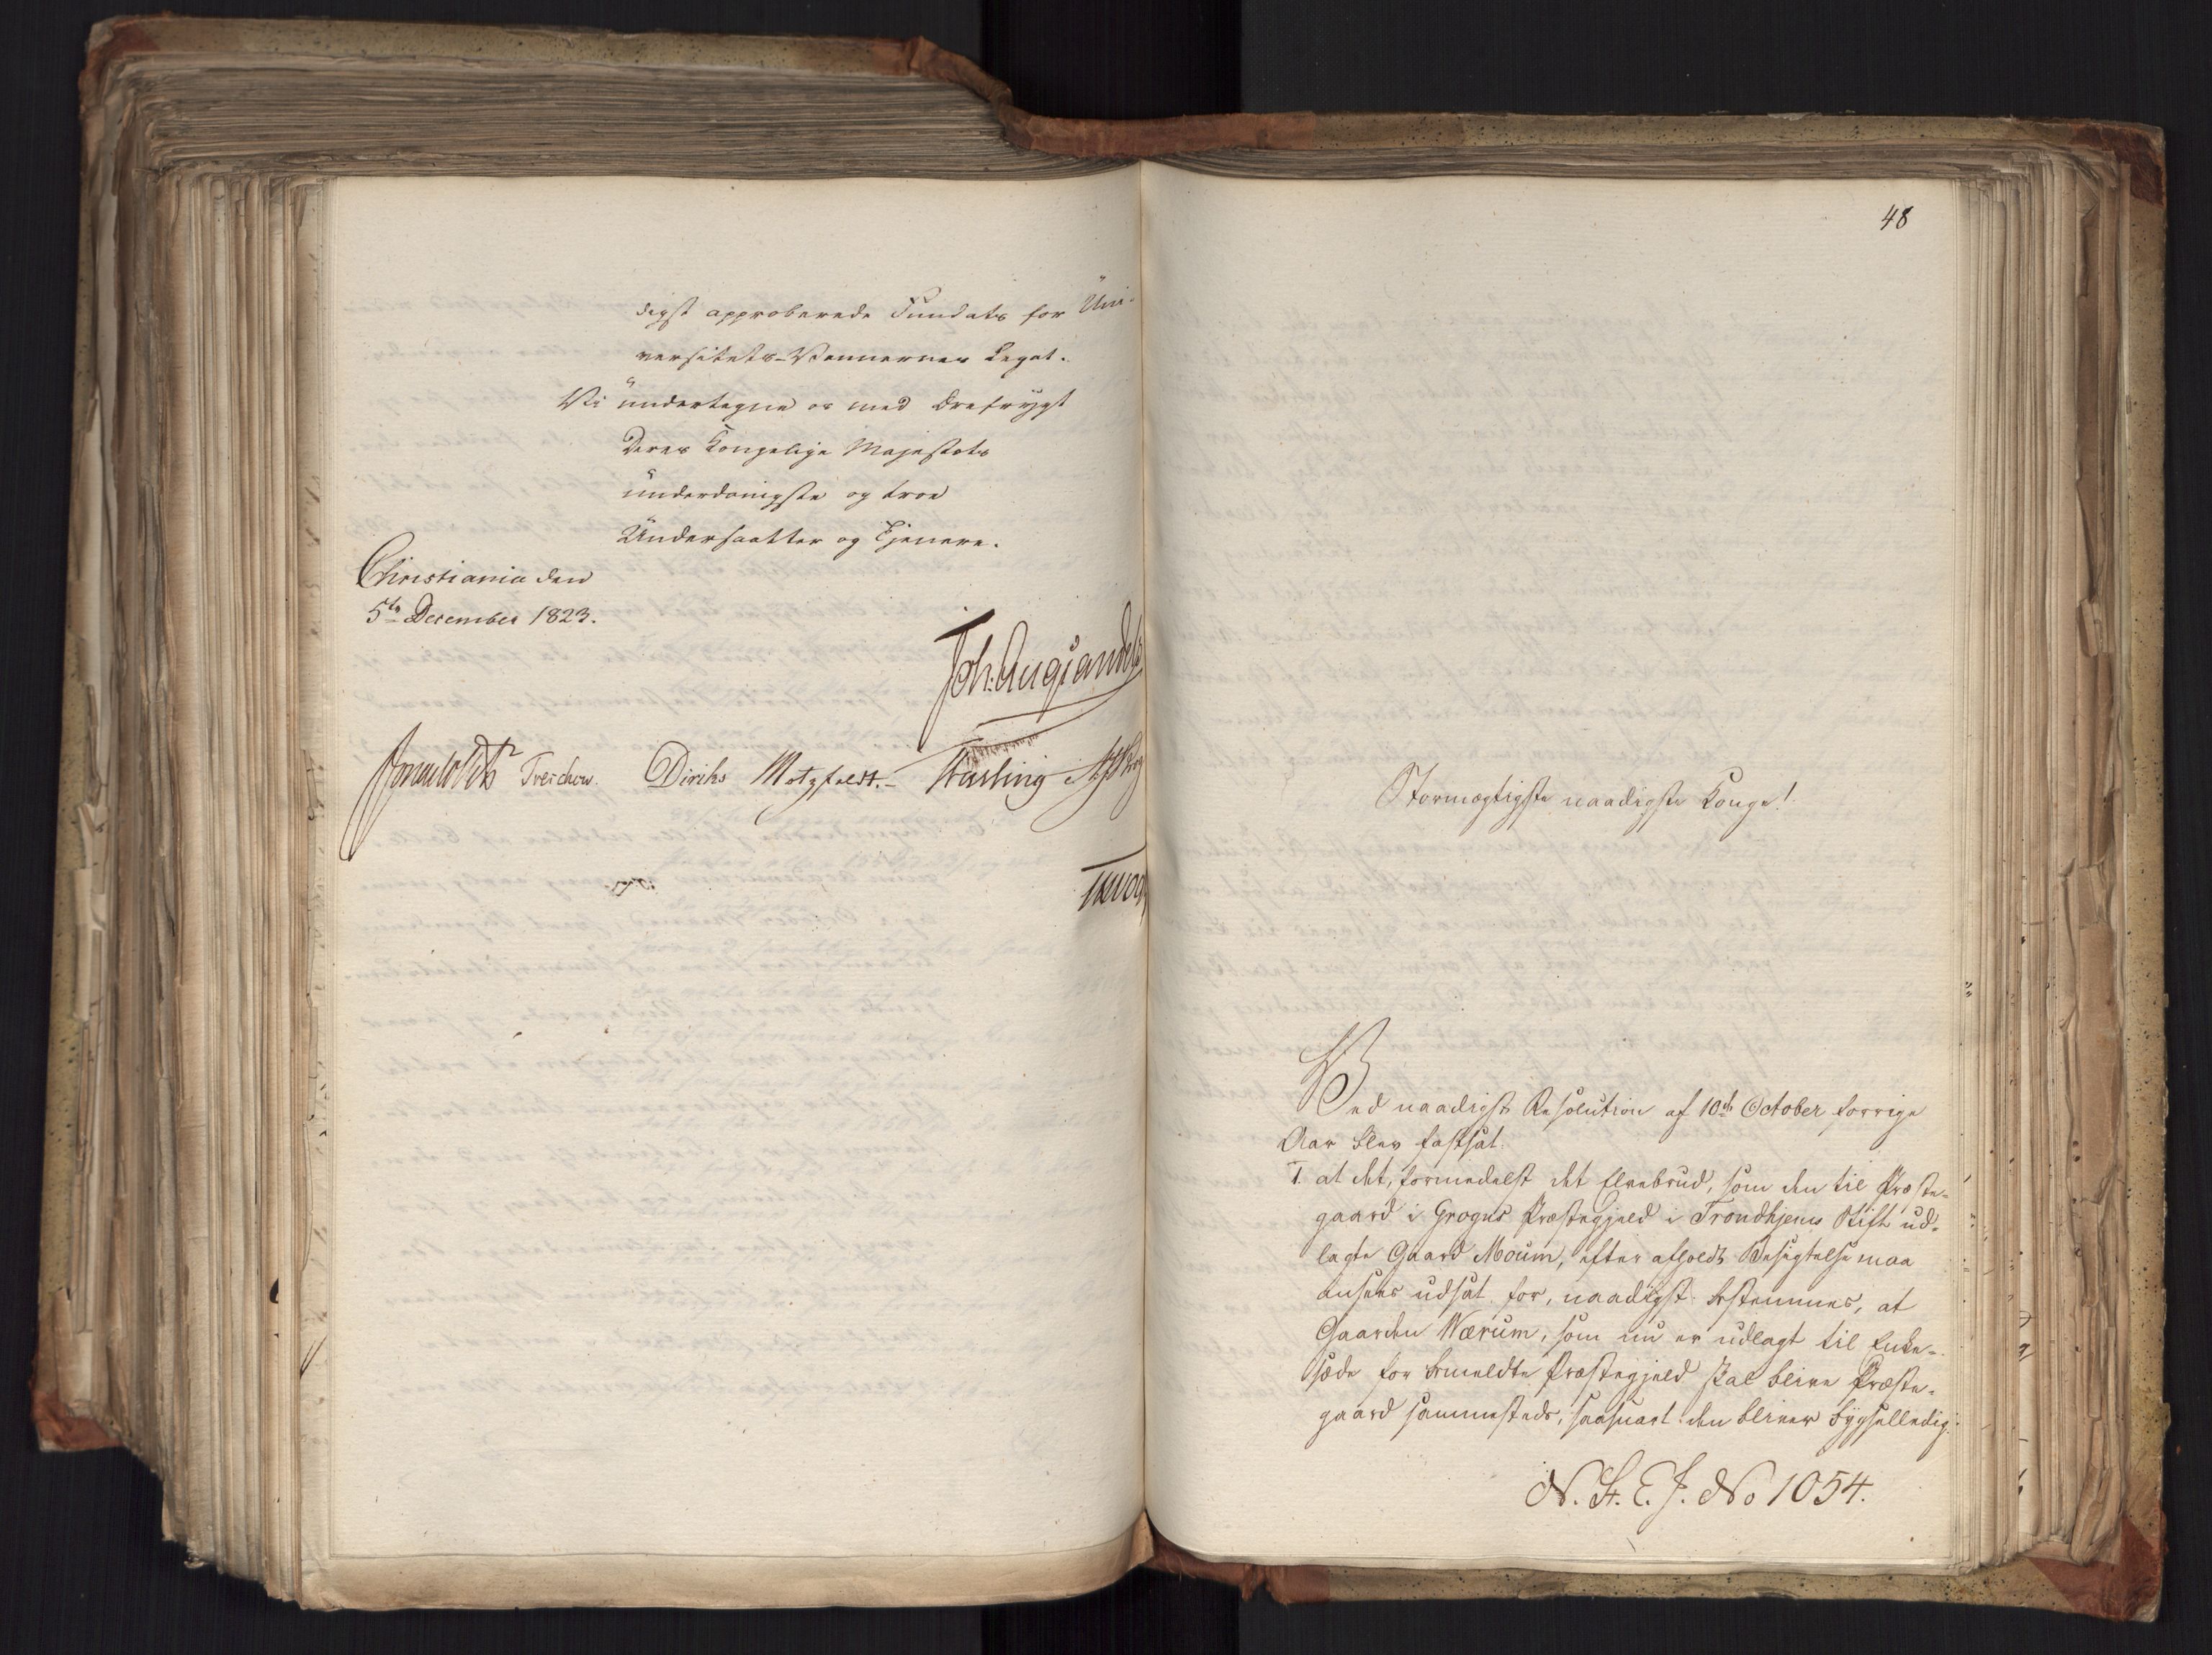 digst approberede Fundats for Uni-
versitets-Vennernes Legat.
Vi undertegne os med Ærefrygt
Deres Kongelige Majestæts
underdanigste og troe
Undersaatter og Tjenere.
Christiania den
5te December 1823.
Joh: Aug: Sandels
Sommerhielm Treschow. Diriks Motzfeldt.- Fasting Krog
48
Stormægtigste naadigste Konge!
Ved naadigst Resolution af 10de October forrige
Aar blev fastsat:
1. at det, formedelst det Elvebrud, som den til Præste-
gaard i Grogns Præstegjeld i Trondhjems Stift ud-
lagte Gaard Moum, efter afholdt Besigtelse maa
ansees udsat for, naadigst bestemmes, at
Gaarden Wærum, som nu er udlagt til Enke-
sæde for bemeldte Præstegjeld skal blive Præste-
gaard sammesteds, saasnart den bliver bygselledig;
N. St. E. J. No 1054.